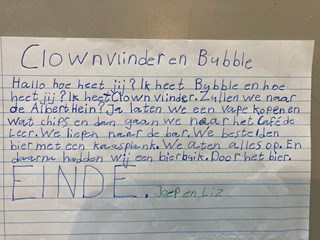 Clownvlinder en Bubble
Hallo hoe heet jij? Ik heet Bubble en hoe
heet jij? Ik heet Clownvlinder. Zullen we naar
de AlbertHein? Ja laten we een vape kopen en
wat chips en dan gaan we naar het Café de
Leer. We liepen naar de bar. We bestelden
bier met een kaasplank. We aten alles op. En
daarna hadden wij een bierbuik. Door het bier.
EINDE. Joep en Liz